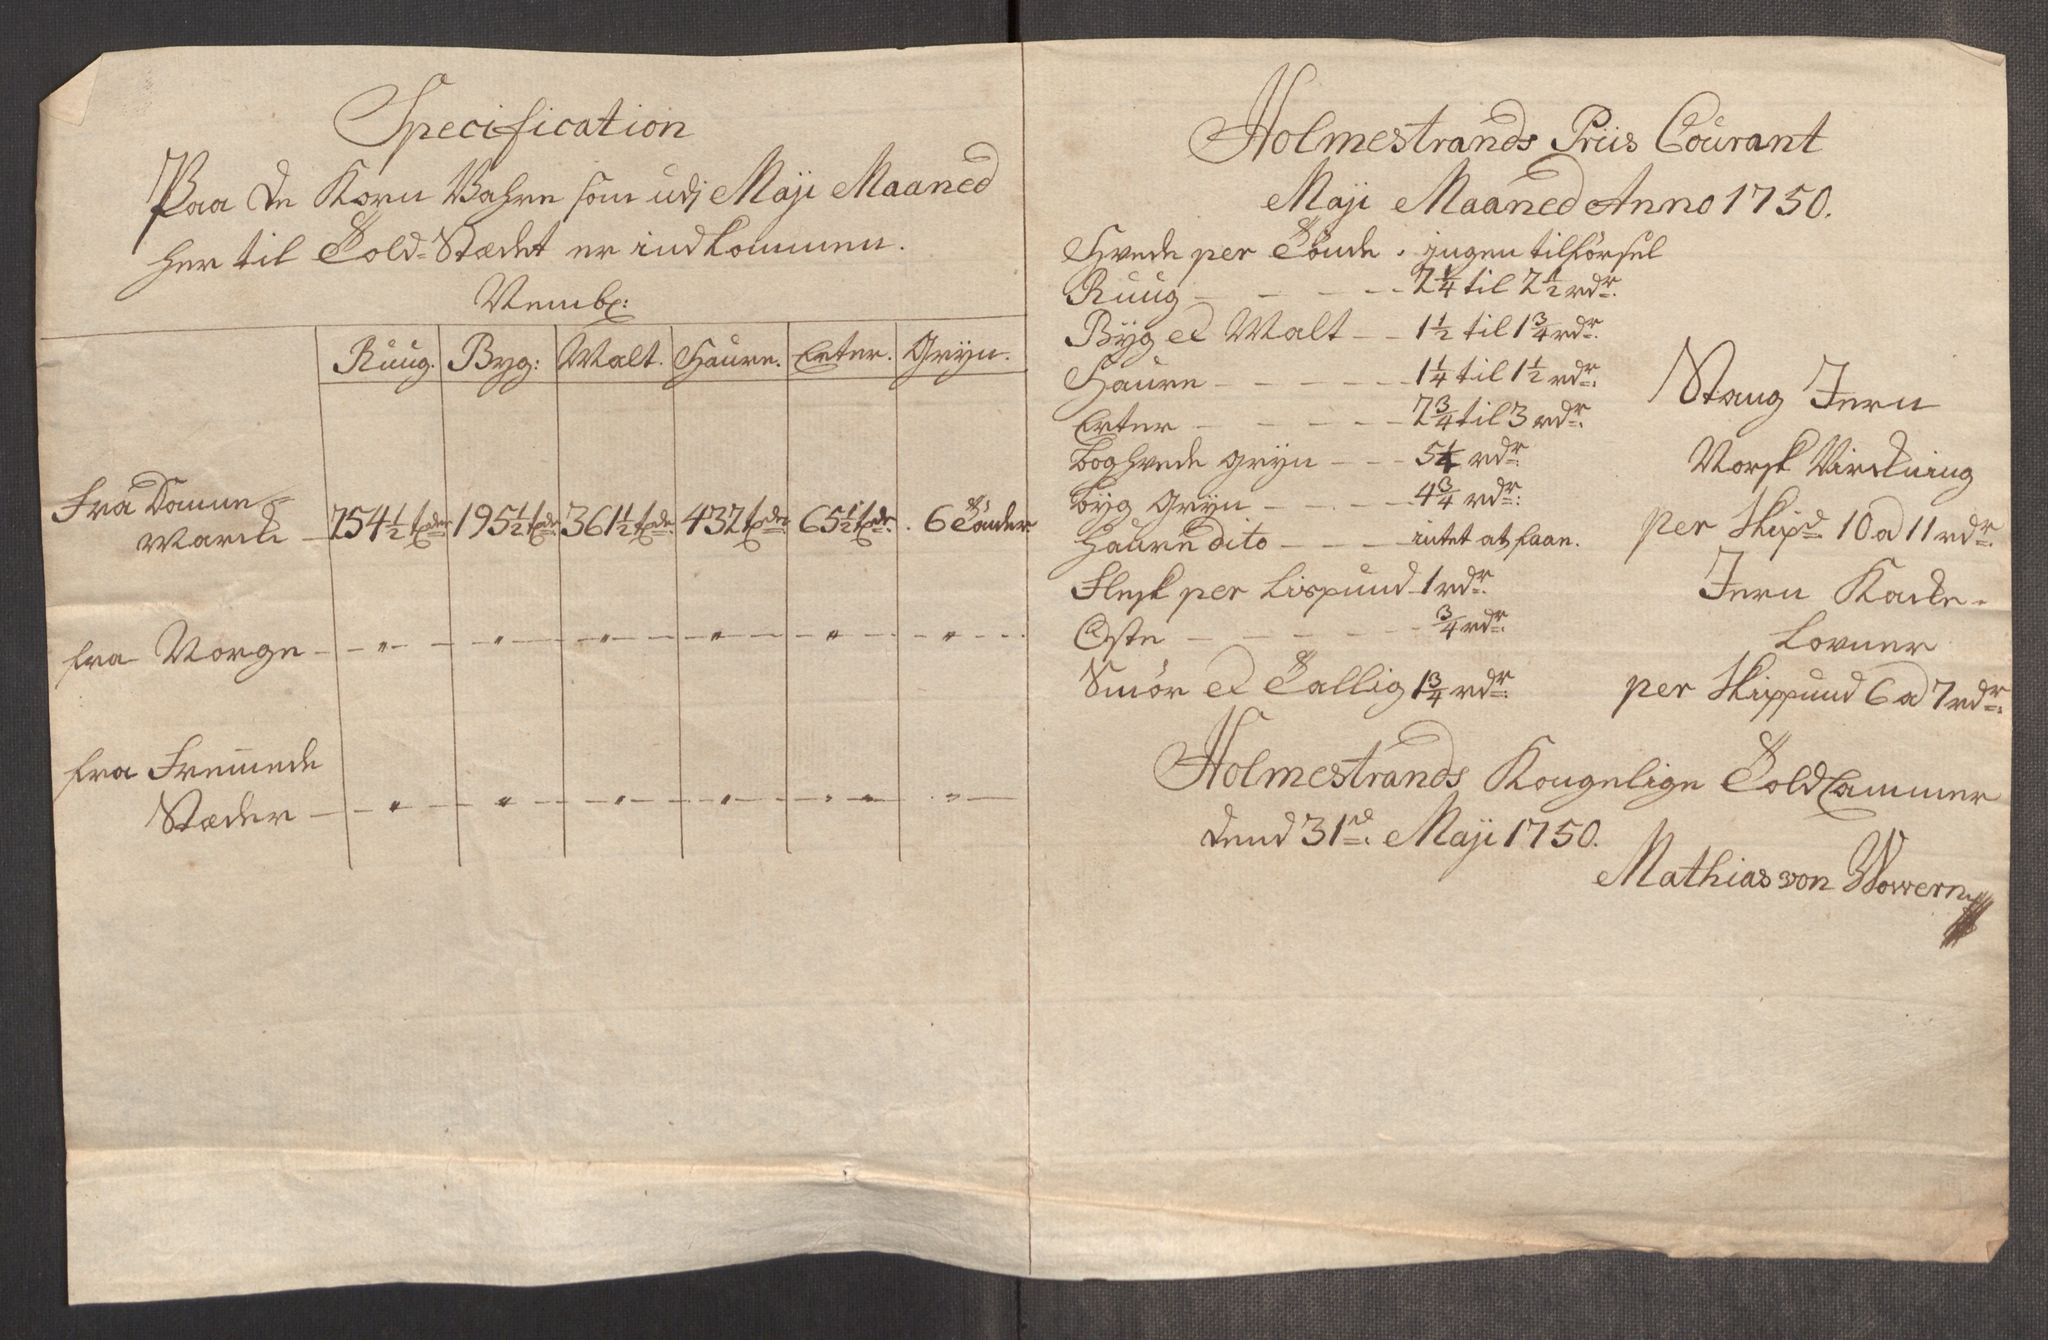 Specification
Paa de Korn Vahre som udj Maji Maaned
her til Told-Stædet er indkommen.
Nembl:
Ruug. Byg: Malt. Haure. Erter. Gryn.
Fra Danne-
march - 254½ tdr. 195½ tdr. 361½ tdr. 432 tdr. 65½ tdr. 6 Tönder
fra Norge - " - " - " - " - " - " -
fra Fremede
Stæder - " - " - " - " - " - " -
Holmestrands Priis Courant
Maji Maaned Anno 1750.
Hvede per Tönde. ingen tilförsel
Ruug - - - - 2¼ til 2½ rdr.
Byg et Malt - - 1½ til 1¾ rdr.
Haure - - - - 1¼ til 1½ rdr.
Erter - - - - 2¾ til 3 rdr.
boghvede gryn - - - 5¼ rdr.
byg Gryn - - - 4¾ rdr.
haure dito - - - intet at faae.
Flesk per Lispund - 1 rdr.
Oste - - - - ¾ rdr.
Smör et Tallig 1¾ rdr.
Stang Jern
Norsk Virckning
per Skipd. 10 a 11 rdr.
Jern Kackel-
Lovner
per Skippund 6 a 7 rdr.
Holmestrands Kongelige Told Cammer
dend 31nd. Maji 1750.
Mathias von Wowern